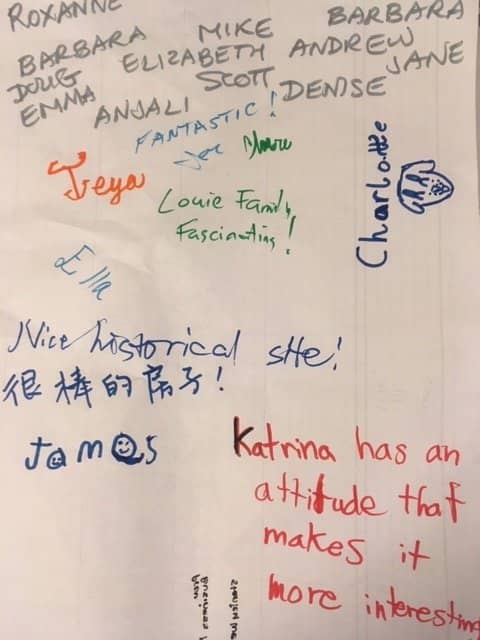 ROXANNE
BARBARA MIKE BARBARA
DOUG ELIZABETH ANDREW
EMMA SCOTT JANE
ANJALI DENISE
FANTASTIC!
Joe
Teya
Louie Family
Fascinating!
Charlotte
Ella
Nice historical site!
很棒的房子!
James
Katrina has an
attitude that
makes it
more interesting